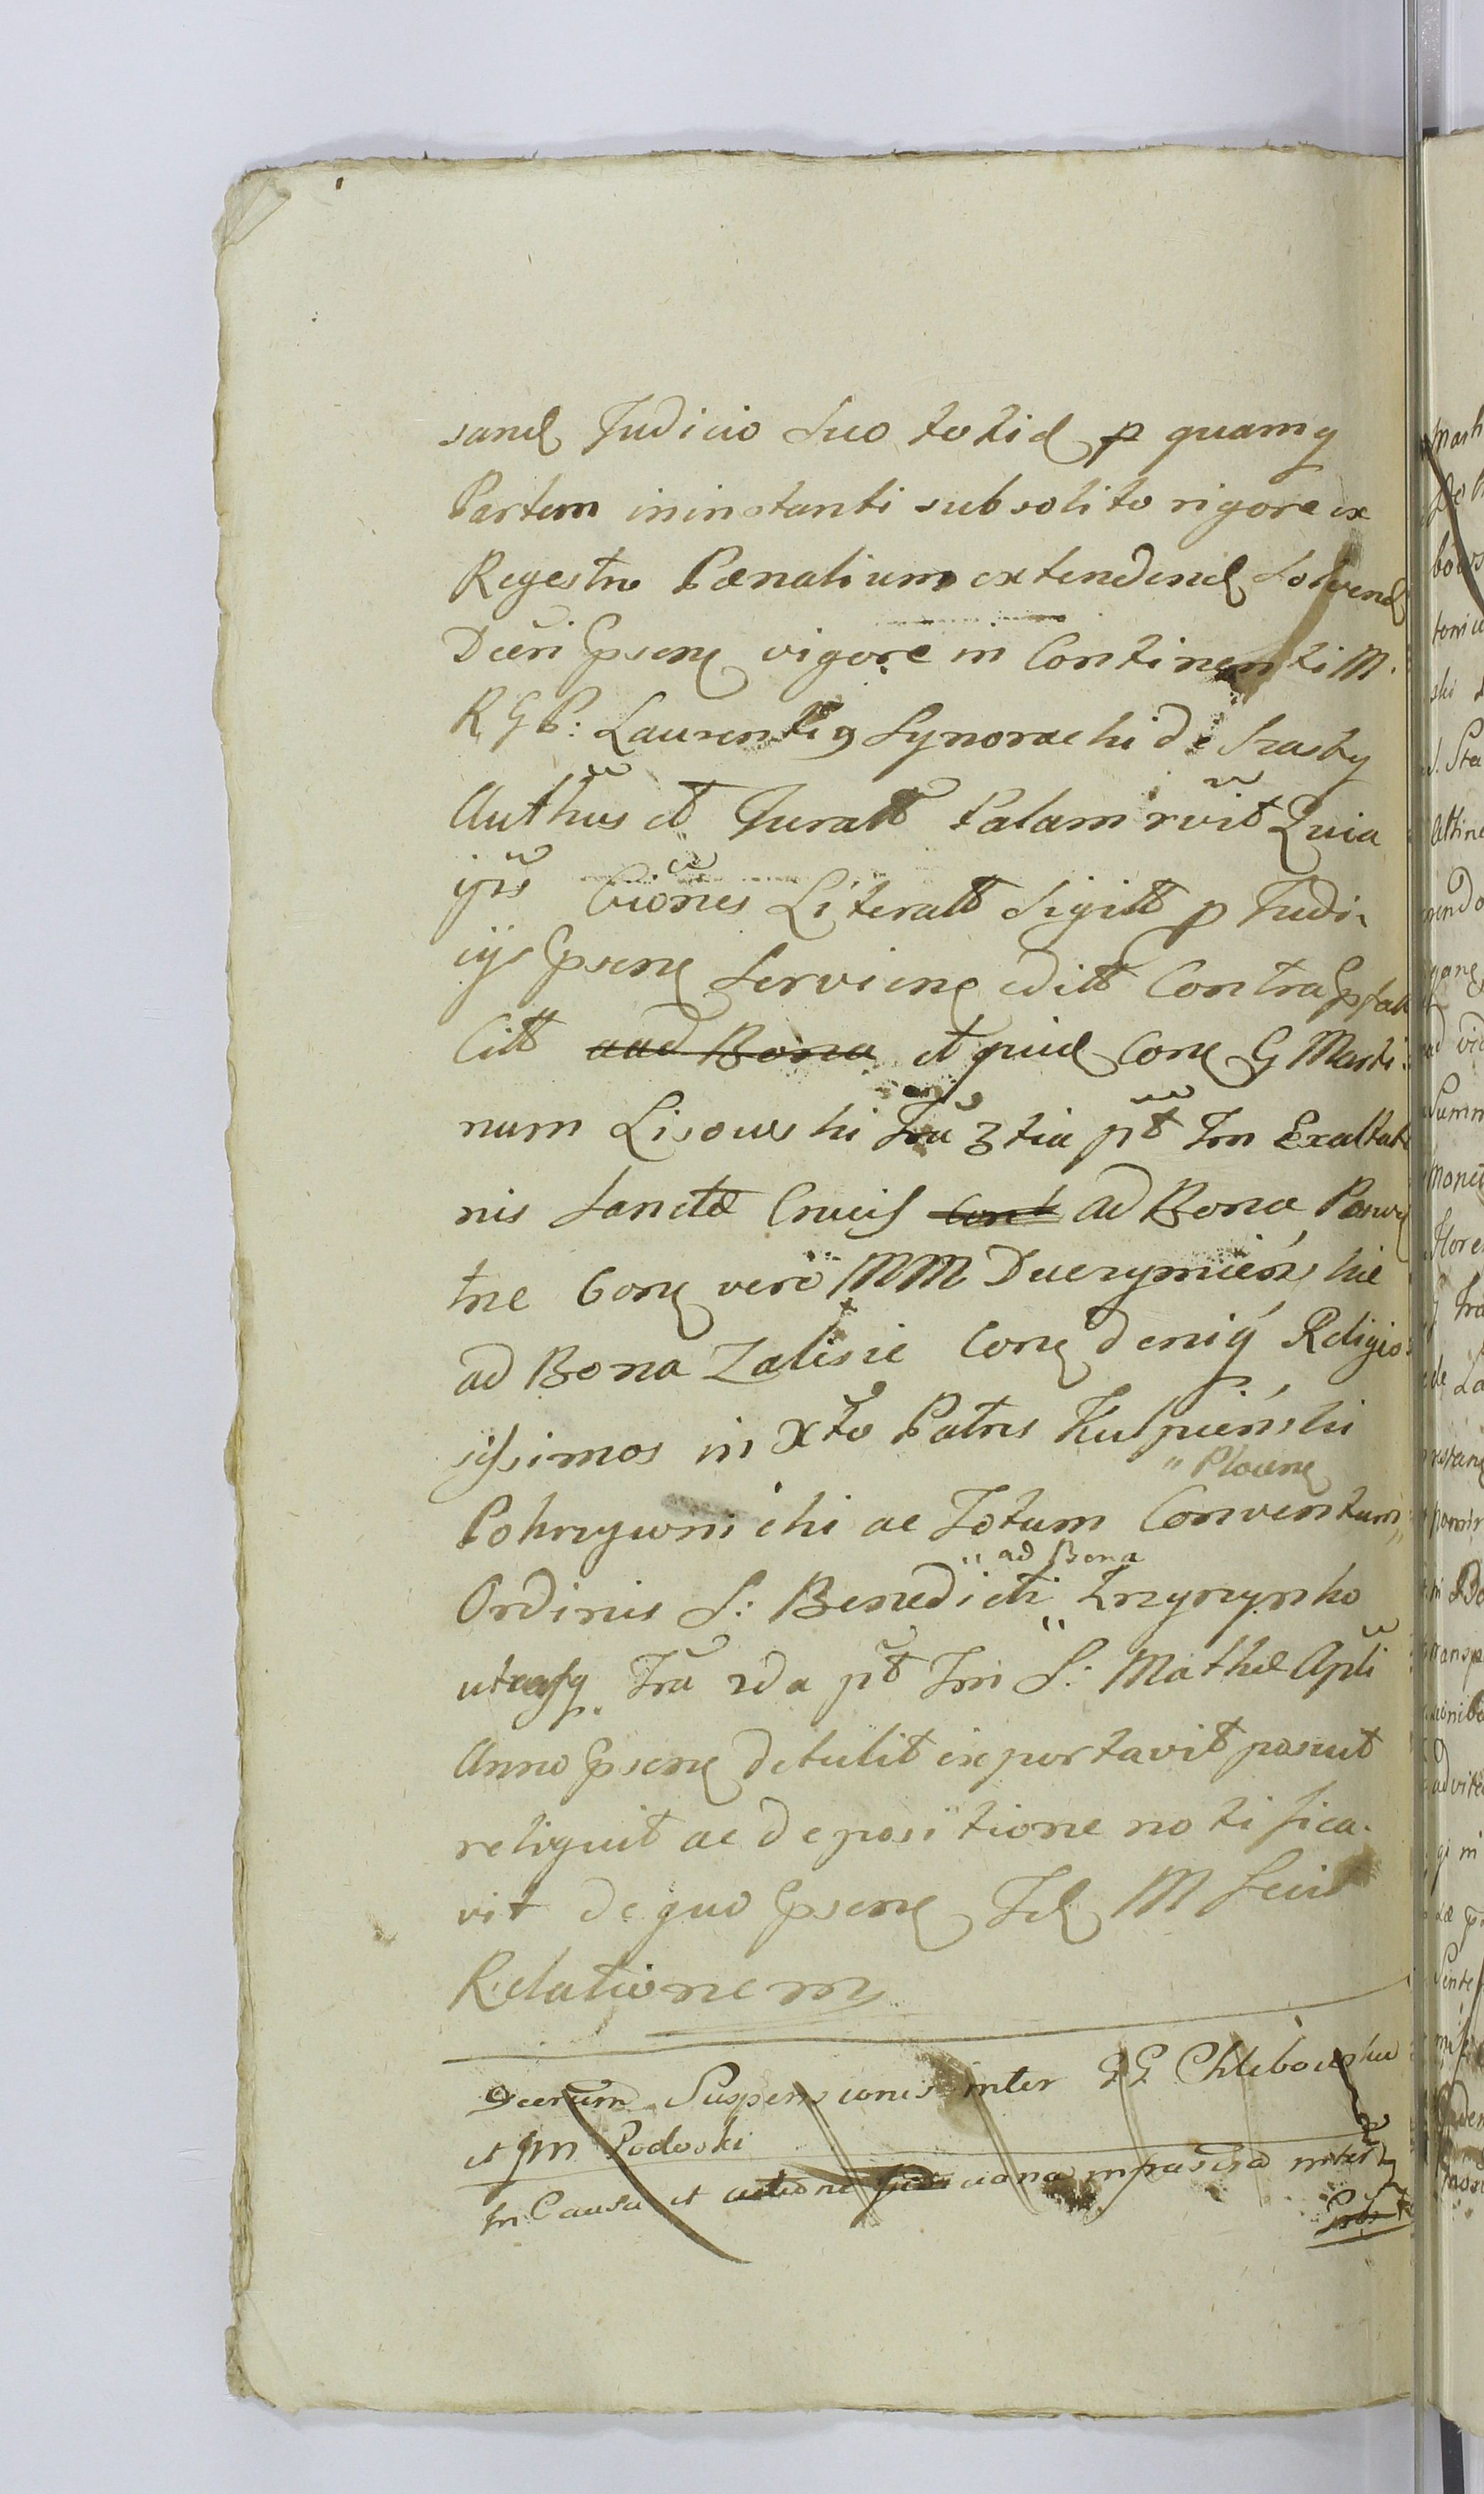 sand Judicio Suo totid p quamq
Partem in instanti sub solito rigore ex
Regestro Pœnalium extendend Solvend
Decri Psens vigore in Continenti M.
R G P: Laurentig Synoracki de Szasty
Authus et Juratt Palam rvit Quia
ijrs Cvones Literatt Sigitt p Judi-
cijs Psens Serviens editt Contra Psatt
Citt aad Bona et quid Cons G Marti:
num Lisowski Fra 3tia pt Fm Exaltatio
nis Sanctæ Crucis Cont ad Bona
tne Cons vero MM Duczymieńskie
ad Bona Zalesie Cons deniq Religio:
sissimos in Xto Patres Kuspieński
" Plocens
Pokrzywnicki ac Totum Conventum"
" ad Bona
Ordinis S: Benedicti " Krzyczynko
utrasq Fra 2da pt Fm S: Mathæ Apli
Anno Psens detulit importavit posuit
reliquit ac de positione notifica-
vit de quo Psens Fd M fecit
Relationem
Decrum Suspensionis inter GG Chlebowskie
et Jm Podoski
In Causa et actione infrascra inter